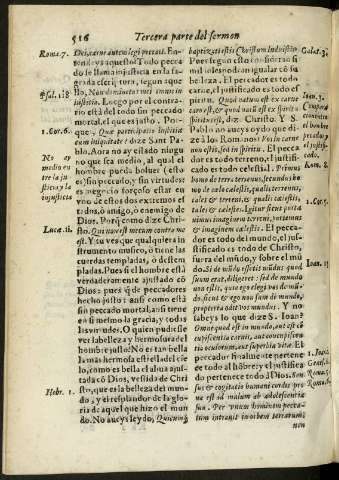 516 Tercera parte del sermon
Roma. 7.
Psal. 118
1. Cor. 6.
No ay
medio en
tre la ju
sticia y la
injusticia
Luca. 11.
Hebr. 1.
Dei, carne autem legi peccati. En-
tendeys aquesto? Todo pecca
do se llama injusticia en la sa-
grada escriptura, segun aque
llo, Non dominetur mei omnis in
iustitia. Luego por el contra-
rio està del todo sin peccado
mortal, el que es justo. Por-
que, Quæ participatio iustitiæ
cum iniquitate? dize Sant Pa-
blo. Aora no ay estado ningu
no que sea medio, al qual el
hombre pueda boluer (esto
es) sin peccado, y sin virtud: es
es negocio forçoso estar en
vno de dos extremos es
todos, ò amigo, ò enemigo de
Dios. Porque como dize Chri
sto. Qui non est mecum contra me
est. Y tu ves que qualquiera in
strumento musico, ò tiene las
cuerdas templadas, ò destem
pladas. Pues si el hombre està
verdaderamente ajustado cõ
Dios: pues que de peccadores
hecho justo: ansi como està
sin peccado mortal, ansi tiene
en si mesmo la gracia, y todas
las virtudes. O quien pudiesse
ver la belleza y hermosura del
hombre justo? No es tan bella
la mas hermosa estrella del cie
lo, como es bella el alma ajus-
tada cõ Dios, vestida de Chri
sto, que es la belleza del mun-
do, y el resplandor de la glo-
ria de aquel que hizo el mun
do. No aueys leydo, Quicunque
baptizati estis Christum induistis?
Pues segun esto considerad si
mil soles podran igualar cõ su
belleza. El peccador es todo
carne, y el justificado es todo
spiritu. Quod natum est ex carne
caro est, & quod natum est ex spiritu
spiritus est, dize Christo. Y S.
Pablo no aueys oydo que di-
ze à los Romanos? Vos in carne
non estis, sed in spiritu. El pecca-
dor es todo terreno, el justifi-
cado es todo celestial. Primus
homo de terra terrenus, secundus ho
mo de cælo cælestis, qualis terrenus,
tales & terreni, qualis cælestis,
tales & cælestes. Igitur sicut porta
uimus imaginem terreni, portemus
& imaginem cælestis. El pecca-
dor es todo del mundo, el justi-
ficado es todo de Christo,
fuera del mũdo, y sobre el mũ
do. Si de mũdo essetis mũdus quod
suum erat diligeret, sed de mundo
non estis, quia ego elegi vos de mũ-
do, sicut & ego non sum de mundo,
propterea odit vos mundus. Y no
sabeys lo que dize S. Ioan?
Omne quod est in mundo, aut est cõ
cupiscentia carnis, aut concupiscen-
tia oculorum, aut superbia vitæ. El
peccador finalmente pertene
ce todo al hõbre; y el justifica
do pertenece todo à Dios. Sen-
sus & cogitatio humani cordis pro
na est ad malum ab adolescentia
sua. Per vnum hominem pecca-
tum intrauit in orbem terrarum
non
Galat. 3.
Ioan. 3.
Rom. 8.
1. Cor. 15.
Ioan. 15.
1. Ioan. 2